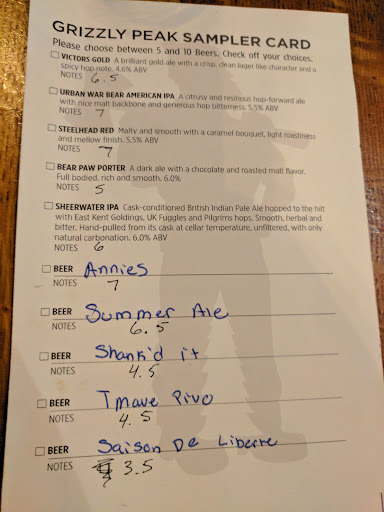 GRIZZLY PEAK SAMPLER CARD
Please choose between 5 and 10 Beers. Check off your choices.
VICTORS GOLD A brilliant gold ale with a crisp, clean lager like character and a
spicy hop note. 4.6% ABV
NOTES 6.5
URBAN WAR BEAR AMERICAN IPA A citrusy and resinous hop-forward ale
with nice malt backbone and generous hop bitterness. 5.5% ABV
NOTES 7
STEELHEAD RED Malty and smooth with a caramel bouquet, light roastiness
and mellow finish. 5.5% ABV
NOTES 7
BEAR PAW PORTER A dark ale with a chocolate and roasted malt flavor.
Full bodied, rich and smooth. 6.0%
NOTES 5
SHEERWATER IPA Cask-conditioned British Indian Pale Ale hopped to the hilt
with East Kent Goldings, UK Fuggles and Pilgrims hops. Smooth, herbal and
bitter. Hand-pulled from its cask at cellar temperature, unfiltered, with only
natural carbonation. 6.0% ABV
NOTES 6
BEER Annies
NOTES 7
BEER Summer Ale
NOTES 6.5
BEER Shank'd it
NOTES 4.5
BEER Tmave Pivo
NOTES 4.5
BEER Saison De Liberte
NOTES 3.5